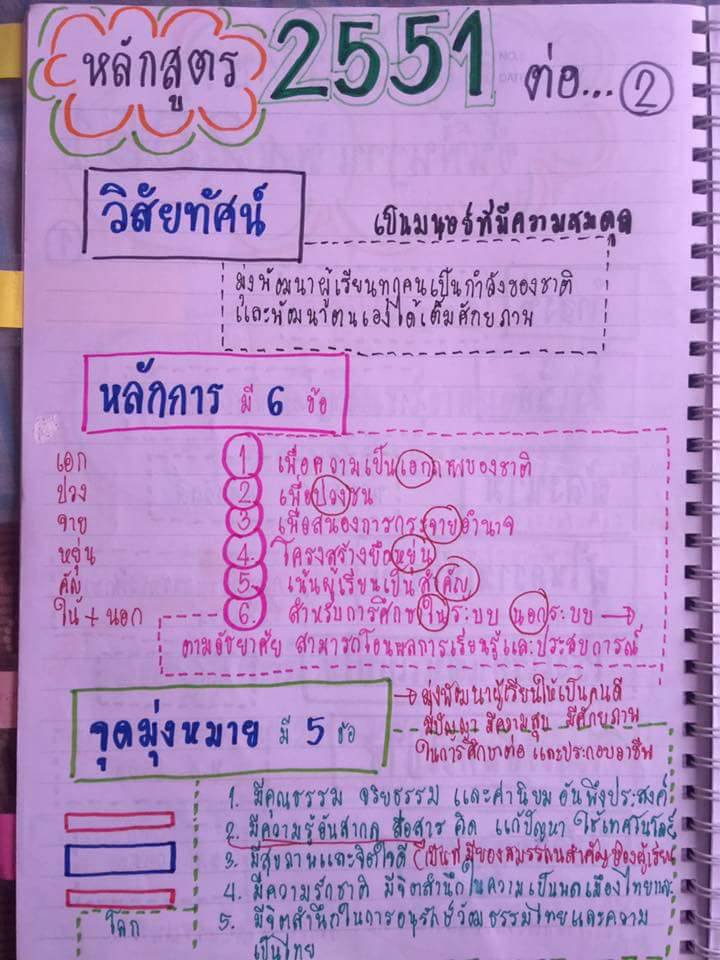 หลักสูตร 2551 ต่อ... ②
วิสัยทัศน์
เป็นมนุษย์ที่มีความสมดุล
มุ่งพัฒนาผู้เรียนทุกคนเป็นกำลังของชาติ
และพัฒนาตนเองได้เต็มศักยภาพ
หลักการ มี 6 ข้อ
เอก 1 เพื่อความเป็นเอกภาพของชาติ
ปวง 2. เพื่อปวงชน
จาย 3 เพื่อสนองการกระจายอำนาจ
หยุ่น 4. โครงสร้างยืดหยุ่น
คัญ 5. เน้นผู้เรียนเป็นสำคัญ
ใน + นอก 6. สำหรับการศึกษาในระบบ นอกระบบ →
ตามอัธยาศัย สามารถโอนผลการเรียนรู้และประสบการณ์
จุดมุ่งหมาย มี 5 ข้อ
→ มุ่งพัฒนาผู้เรียนให้เป็นคนดี
มีปัญญา มีความสุข มีศักยภาพ
ในการศึกษาต่อ และประกอบอาชีพ
1. มีคุณธรรม จริยธรรม และค่านิยมอันพึงประสงค์
2. มีความรู้อันสากล สื่อสาร คิด แก้ปัญหา ใช้เทคโนโลยี
3. มีสุขภาพและจิตใจดี (เป็นที่มีของสมรรถนสำคัญของผู้เรียน
4. มีความรักชาติ มีจิตสำนึกในความเป็นพลเมืองไทยและ
โลก
5. มีจิตสำนึกในการอนุรักษ์วัฒธรรมไทยและความ
เป็นไทย